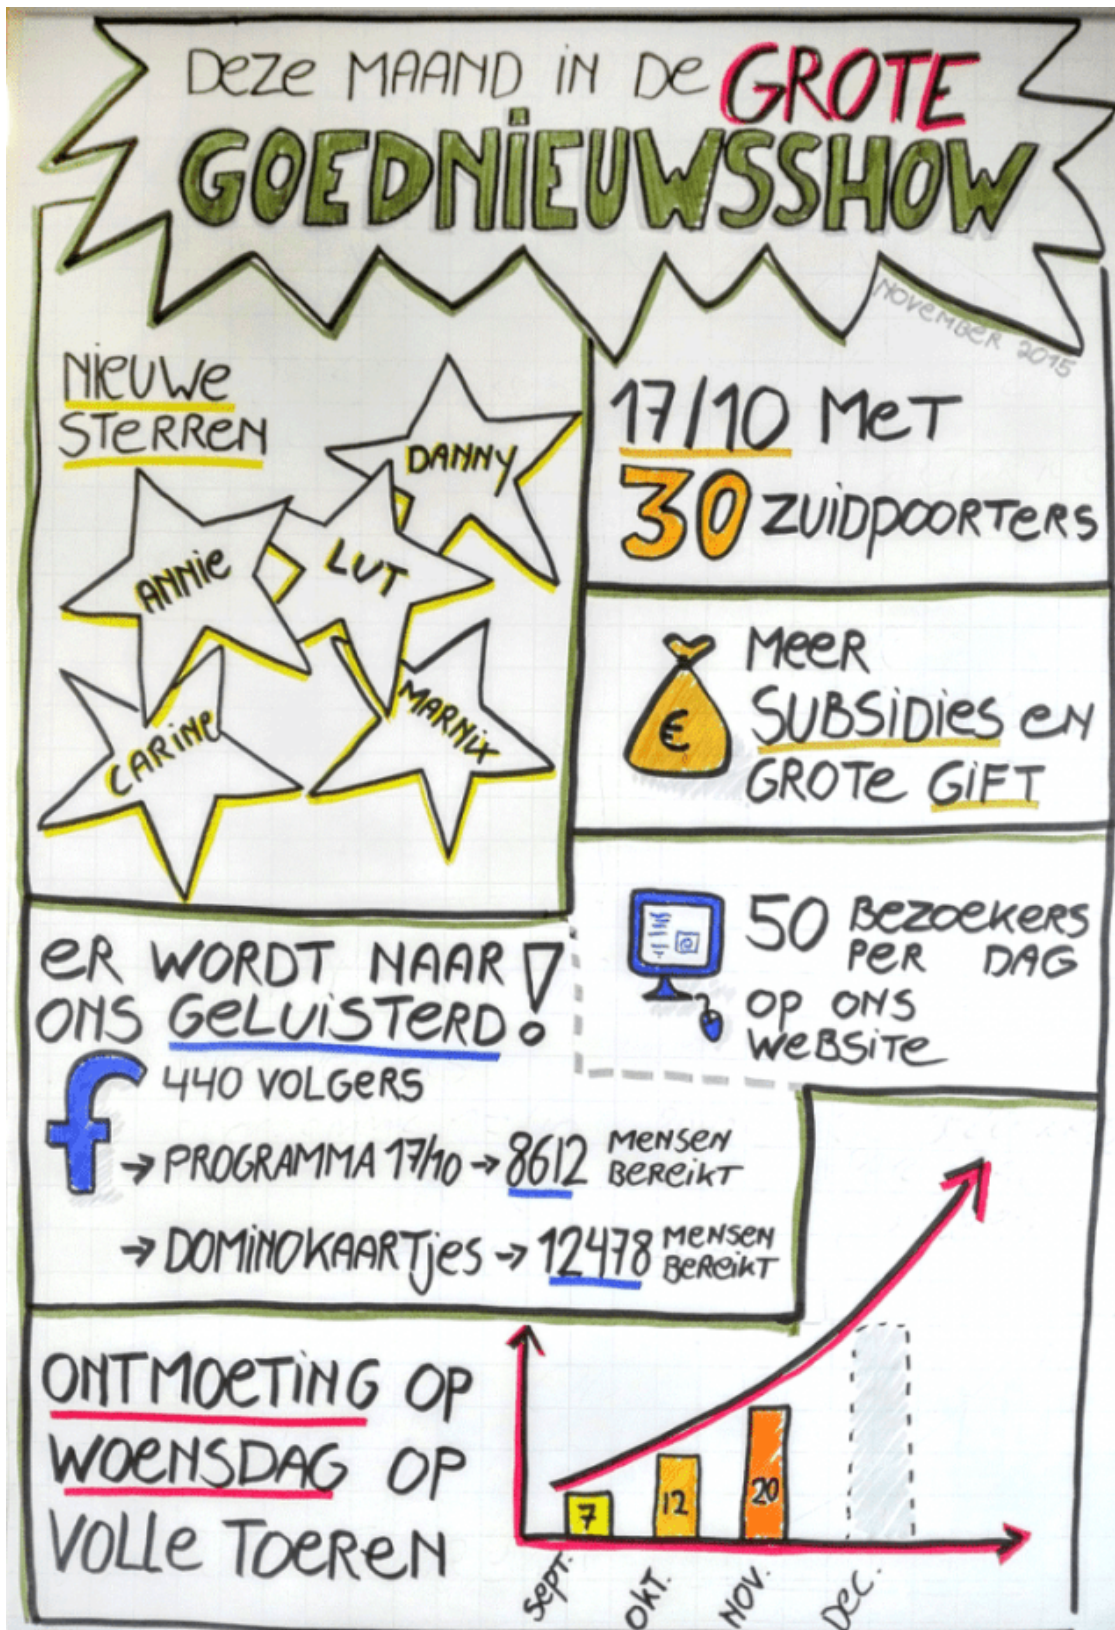 Deze MAAND iN De GROTE
GOEDNiEUWSSHOW
NOVEMBER 2015
NiEUWe
STeRREN
DANNY
ANNie
LUT
CARiNe
MARNiX
17/10 MeT
30 ZUiDPOORTeRS
MeeR
SUBSiDies eN
GROTe GiFT
50 BeZOeKeRS
PeR DAG
OP ONS
WeBSiTe
eR WORDT NAAR
ONS GeLUiSTeRD!
f
440 VOLGeRS
→ PROGRAMMA 17/10 → 8612 MeNSeN
BeReiKT
→ DOMiNOKAARTjes → 12478 MeNSeN
BeReiKT
ONTMOeTiNG OP
WOeNSDAG OP
VOLLe TOeReN
7
12
20
SePT.
OKT.
NOV.
Dec.
€